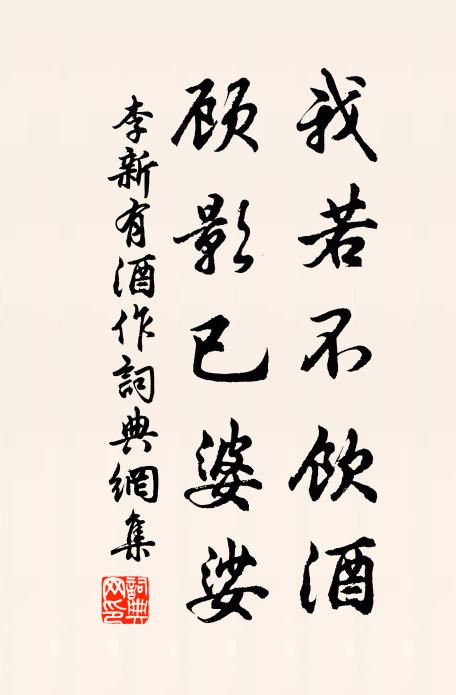 我若不飲酒
顧影已婆娑
李新有酒作詞典網集
詞典网印